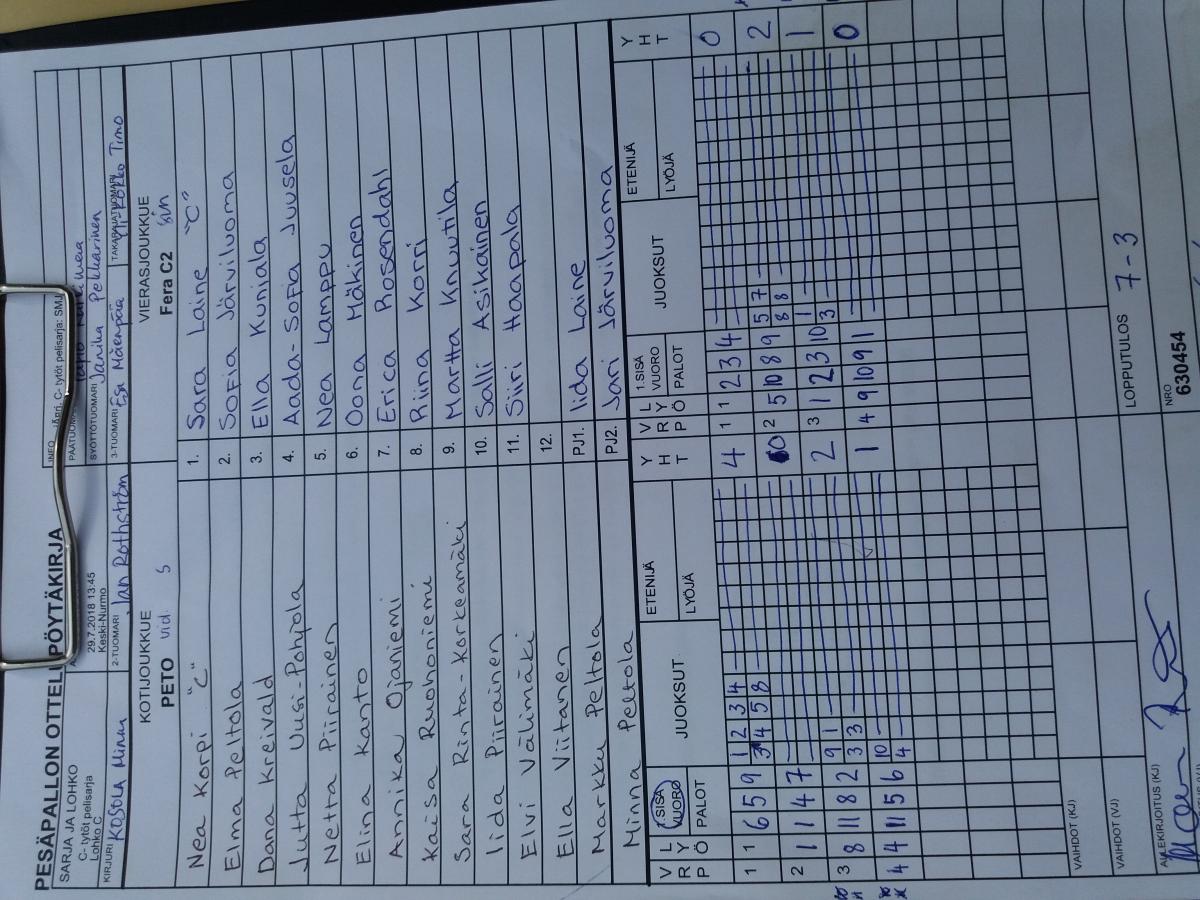 PESÄPALLON OTTELUPÖYTÄKIRJA
SARJA JA LOHKO
C- tytöt pelisarja
Lohko C
29.7.2018 13:45
Keski-Nurmo
INFO
C- tytöt pelisarja: SMJ
KIRJURI Kosola Minna
2-TUOMARI Jan Rothström
SYÖTTÖTUOMARI Janika Pekkarinen
3-TUOMARI Esa Mäenpää
Timo
KOTIJOUKKUE
PETO
VIERASJOUKKUE
Fera C2 sin
Nea Korpi "C"
1. Sara Laine "C"
Elma Peltola
2. Sofia Järviluoma
Dana Kreivald
3. Ella Kuniala
Jutta Uusi-Pohjola
4. Aada-Sofia Juusela
Netta Piirainen
5. Nea Lamppu
Elina Kanto
6. Oona Mäkinen
Annika Ojaniemi
7. Erica Rosendahl
Kaisa Ruohoniemi
8. Riina Korri
Sara Rinta-Korkeamäki
9. Martta Knuutila
Iida Piirainen
10. Salli Asikainen
Elvi Välimäki
11. Siiri Haapala
Ella Viitanen
12.
Markku Peltola
PJ1. Iida Laine
Minna Peltola
PJ2. Jari Järviluoma
VRP LYÖ 1 SISÄ VUORO PALOT JUOKSUT ETENIJÄ LYÖJÄ YHT
LYÖ 1 SISÄ VUORO PALOT JUOKSUT ETENIJÄ LYÖJÄ YHT
1 1 6 5 9 1 2 3 4 4
1 1 2 3 4 0
4 5 8
2 5 10 8 9 5 7 2
8 8
2 1 1 4 7
3 1 2 3 10 1 1
3
3 8 11 8 2 9 1 2
3 3
4 9 10 9 1 0
4 4 11 5 6 10 1
4
VAIHDOT (KJ)
VAIHDOT (VJ)
LOPPUTULOS 7-3
ALLEKIRJOITUS (KJ)
NRO
630454